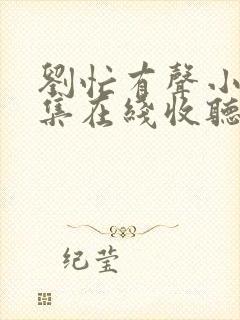 劉忙有聲小
集在綫收聽
纪莹